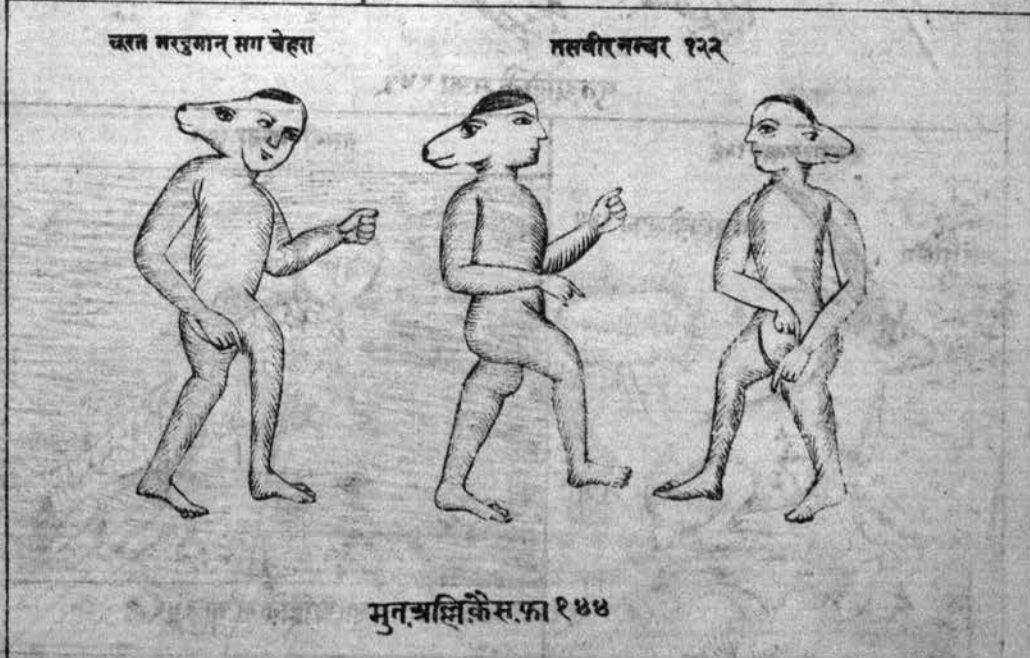 मरदुमान् सग चेहरा
तसवीर नम्बर १२२
मुत.अल्लिक़ैस.फा १४४